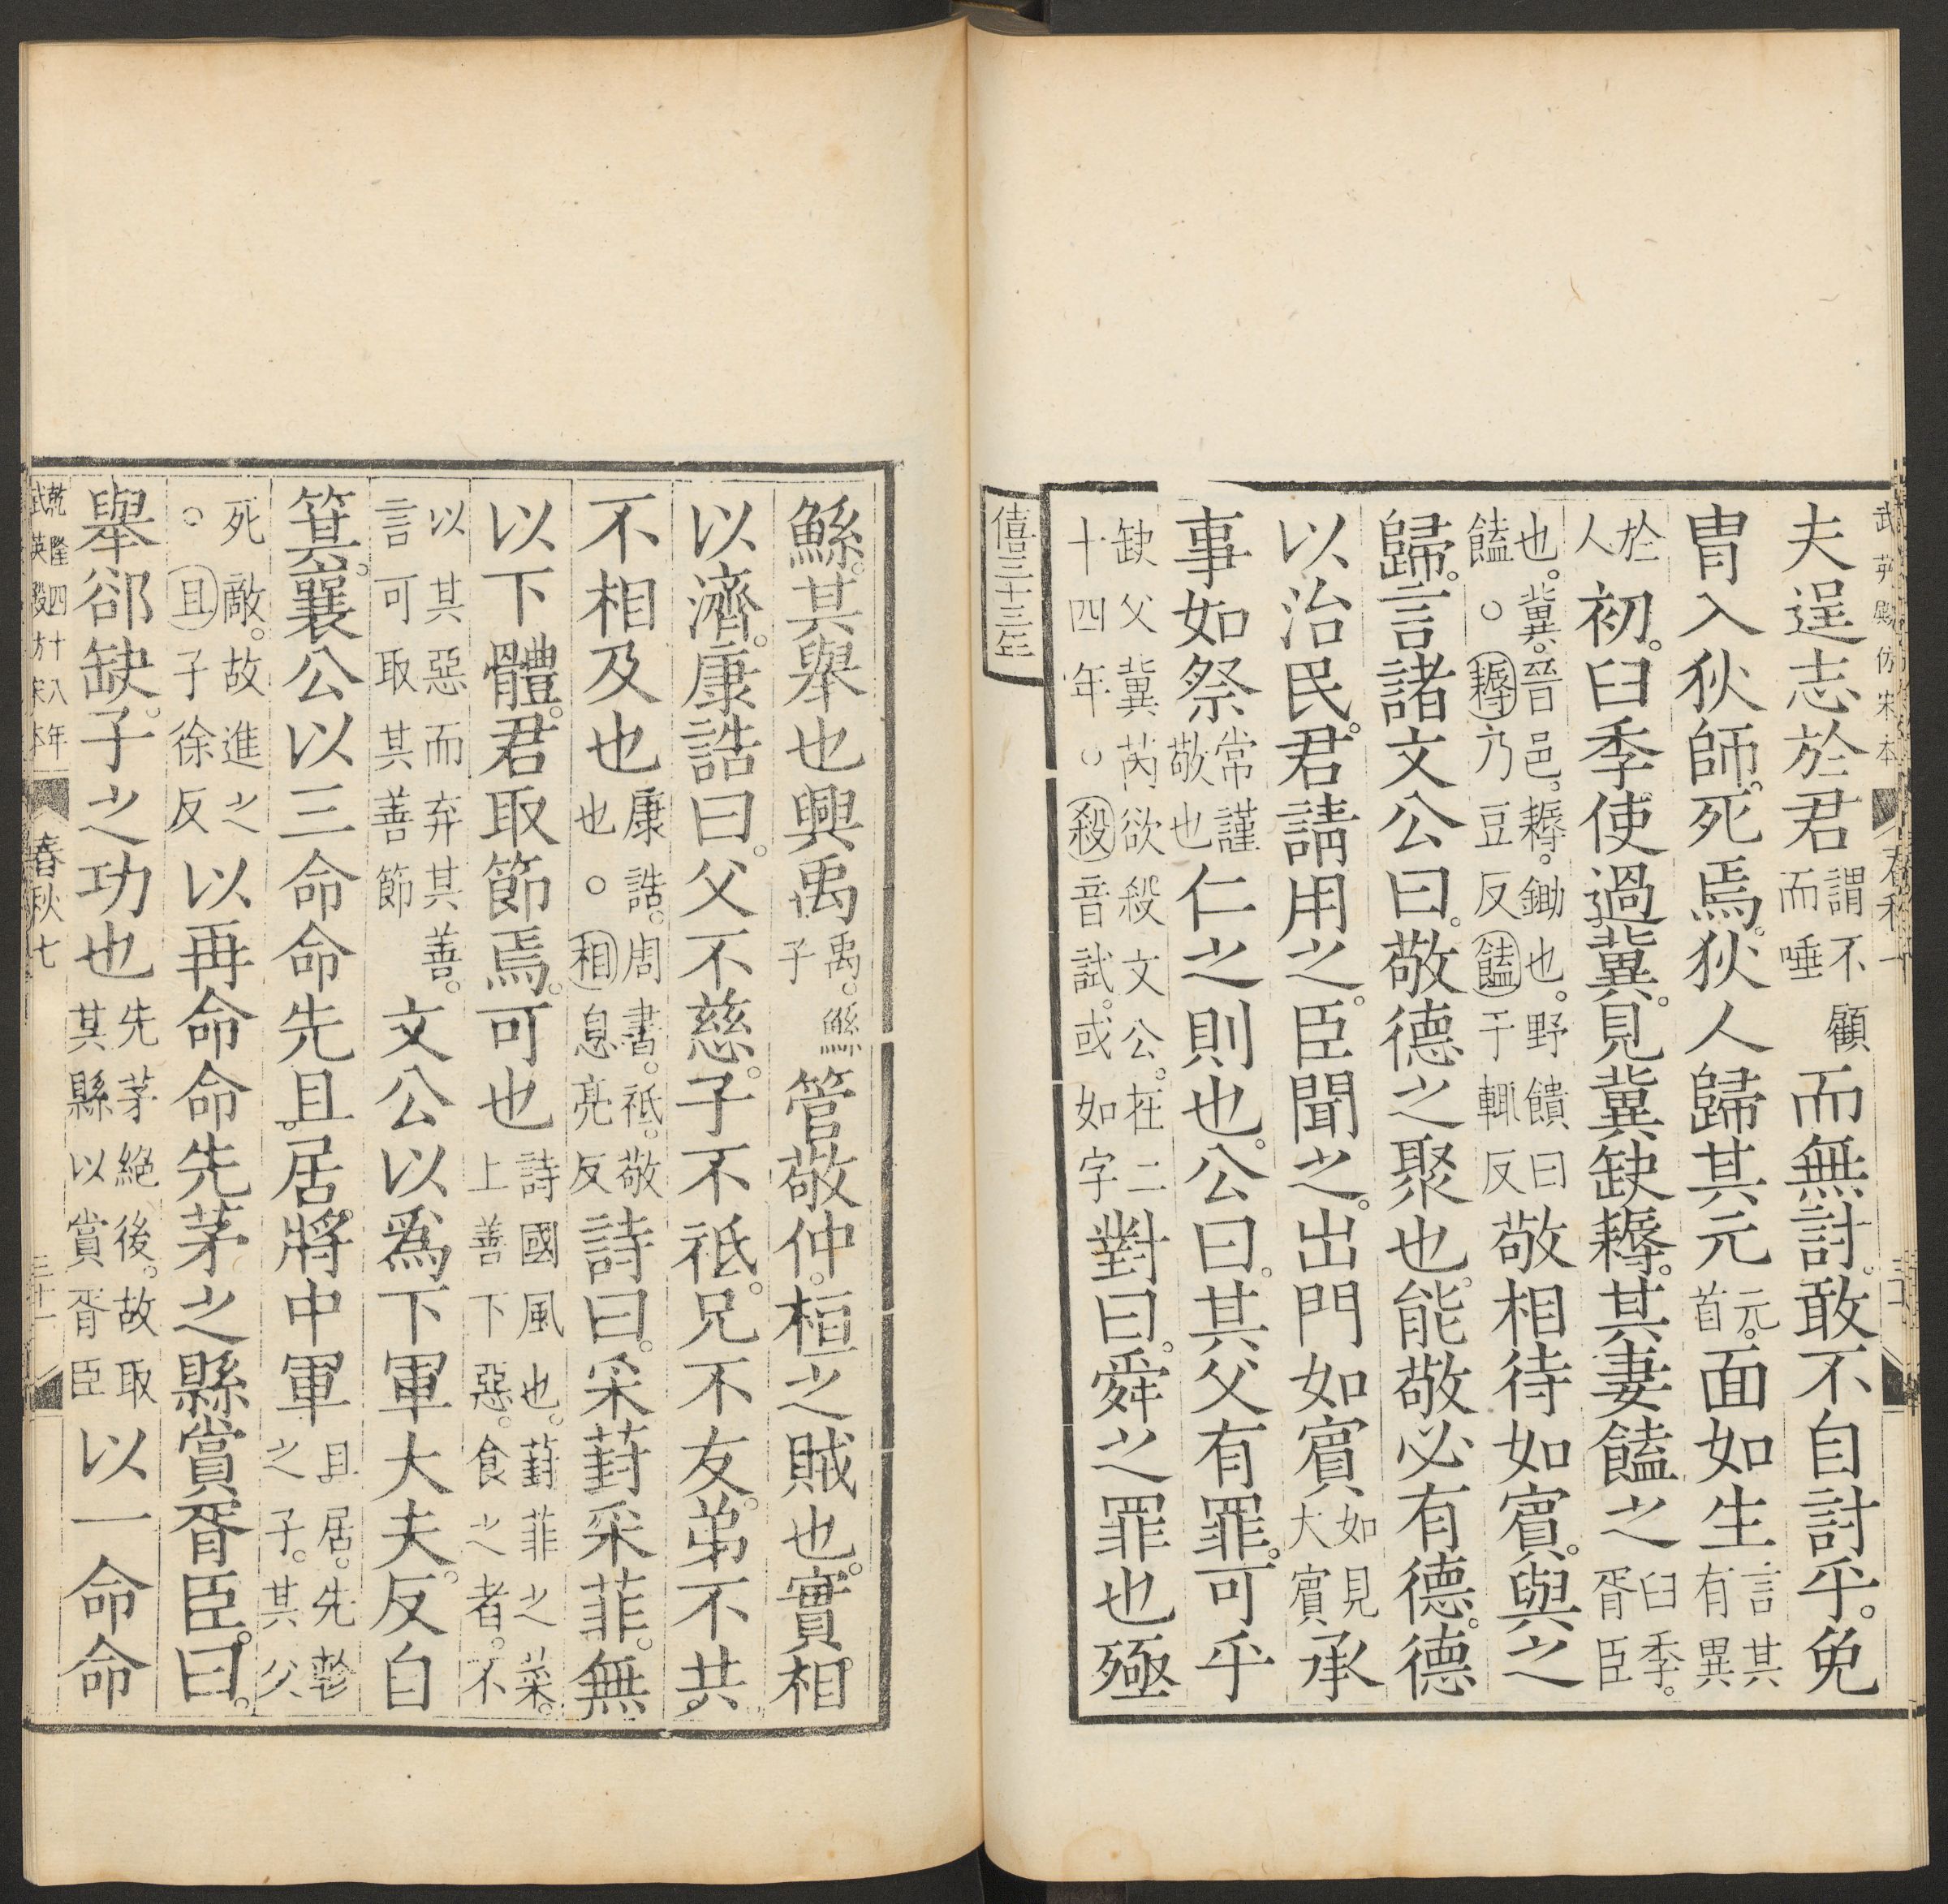 武英殿仿宋本 春秋七
夫逞志於君謂不顧而唾而無討。敢不自討乎。免
冑入狄師。死焉。狄人歸其元元。首面如生言其有異
於人初。臼季使過冀。見冀缺耨。其妻饁之臼季。胥臣
也。冀。晉邑。耨。鋤也。野饋曰饁○耨乃豆反饁于輒反敬相待如賓。與之
歸。言諸文公曰。敬德之聚也。能敬必有德。德
以治民。君請用之。臣聞之。出門如賓如見大賓承
事如祭常謹敬也仁之則也。公曰。其父有罪。可乎
缺父冀芮欲殺文公。在二十四年○殺音試。或如字對曰。舜之罪也殛
僖三十三年
鯀。其舉也興禹禹。鯀子管敬仲。桓之賊也。實相
以濟。康誥曰。父不慈。子不祗。兄不友。弟不共。
不相及也康誥。周書。祗。敬也。○相息亮反詩曰。采葑采菲。無
以下體。君取節焉。可也詩國風也。葑菲之菜。上善下惡。食之者。不
以其惡而弃其善。言可取其善節文公以爲下軍大夫。反自
箕。襄公以三命命先且居將中軍且居。先軫之子。其父
死敵。故進之○且子徐反以再命命先茅之縣賞胥臣。曰。
舉郤缺。子之功也先茅絕後。故取其縣以賞胥臣以一命命
乾隆四十八年
武英殿仿宋本
春秋七
三十一